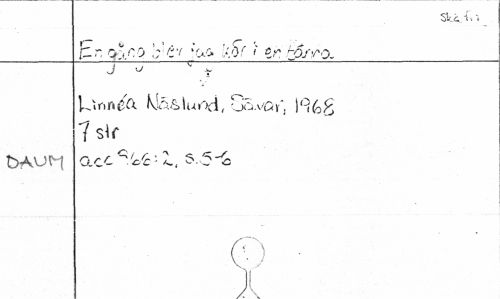 En gång blev jag kär i en tärna
Linnéa Näslund, Sävar, 1968
7 str
DAUM acc 966:2, s. 5-6